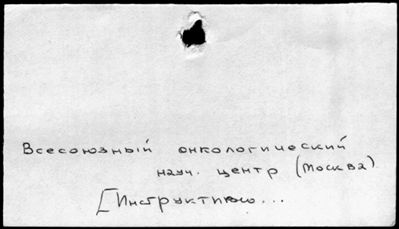 Всесоюзный онкологический
науч. центр (Москва)
[Инструктию...